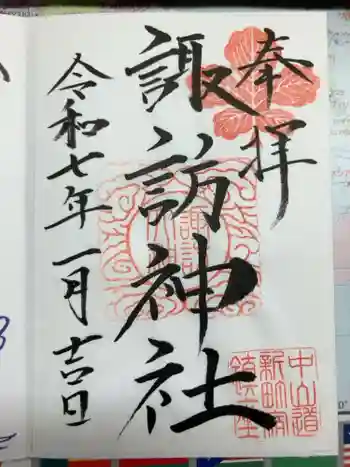 奉拝
諏訪神社
令和七年一月吉日
諏訪
中山道
新町宿
鎮座